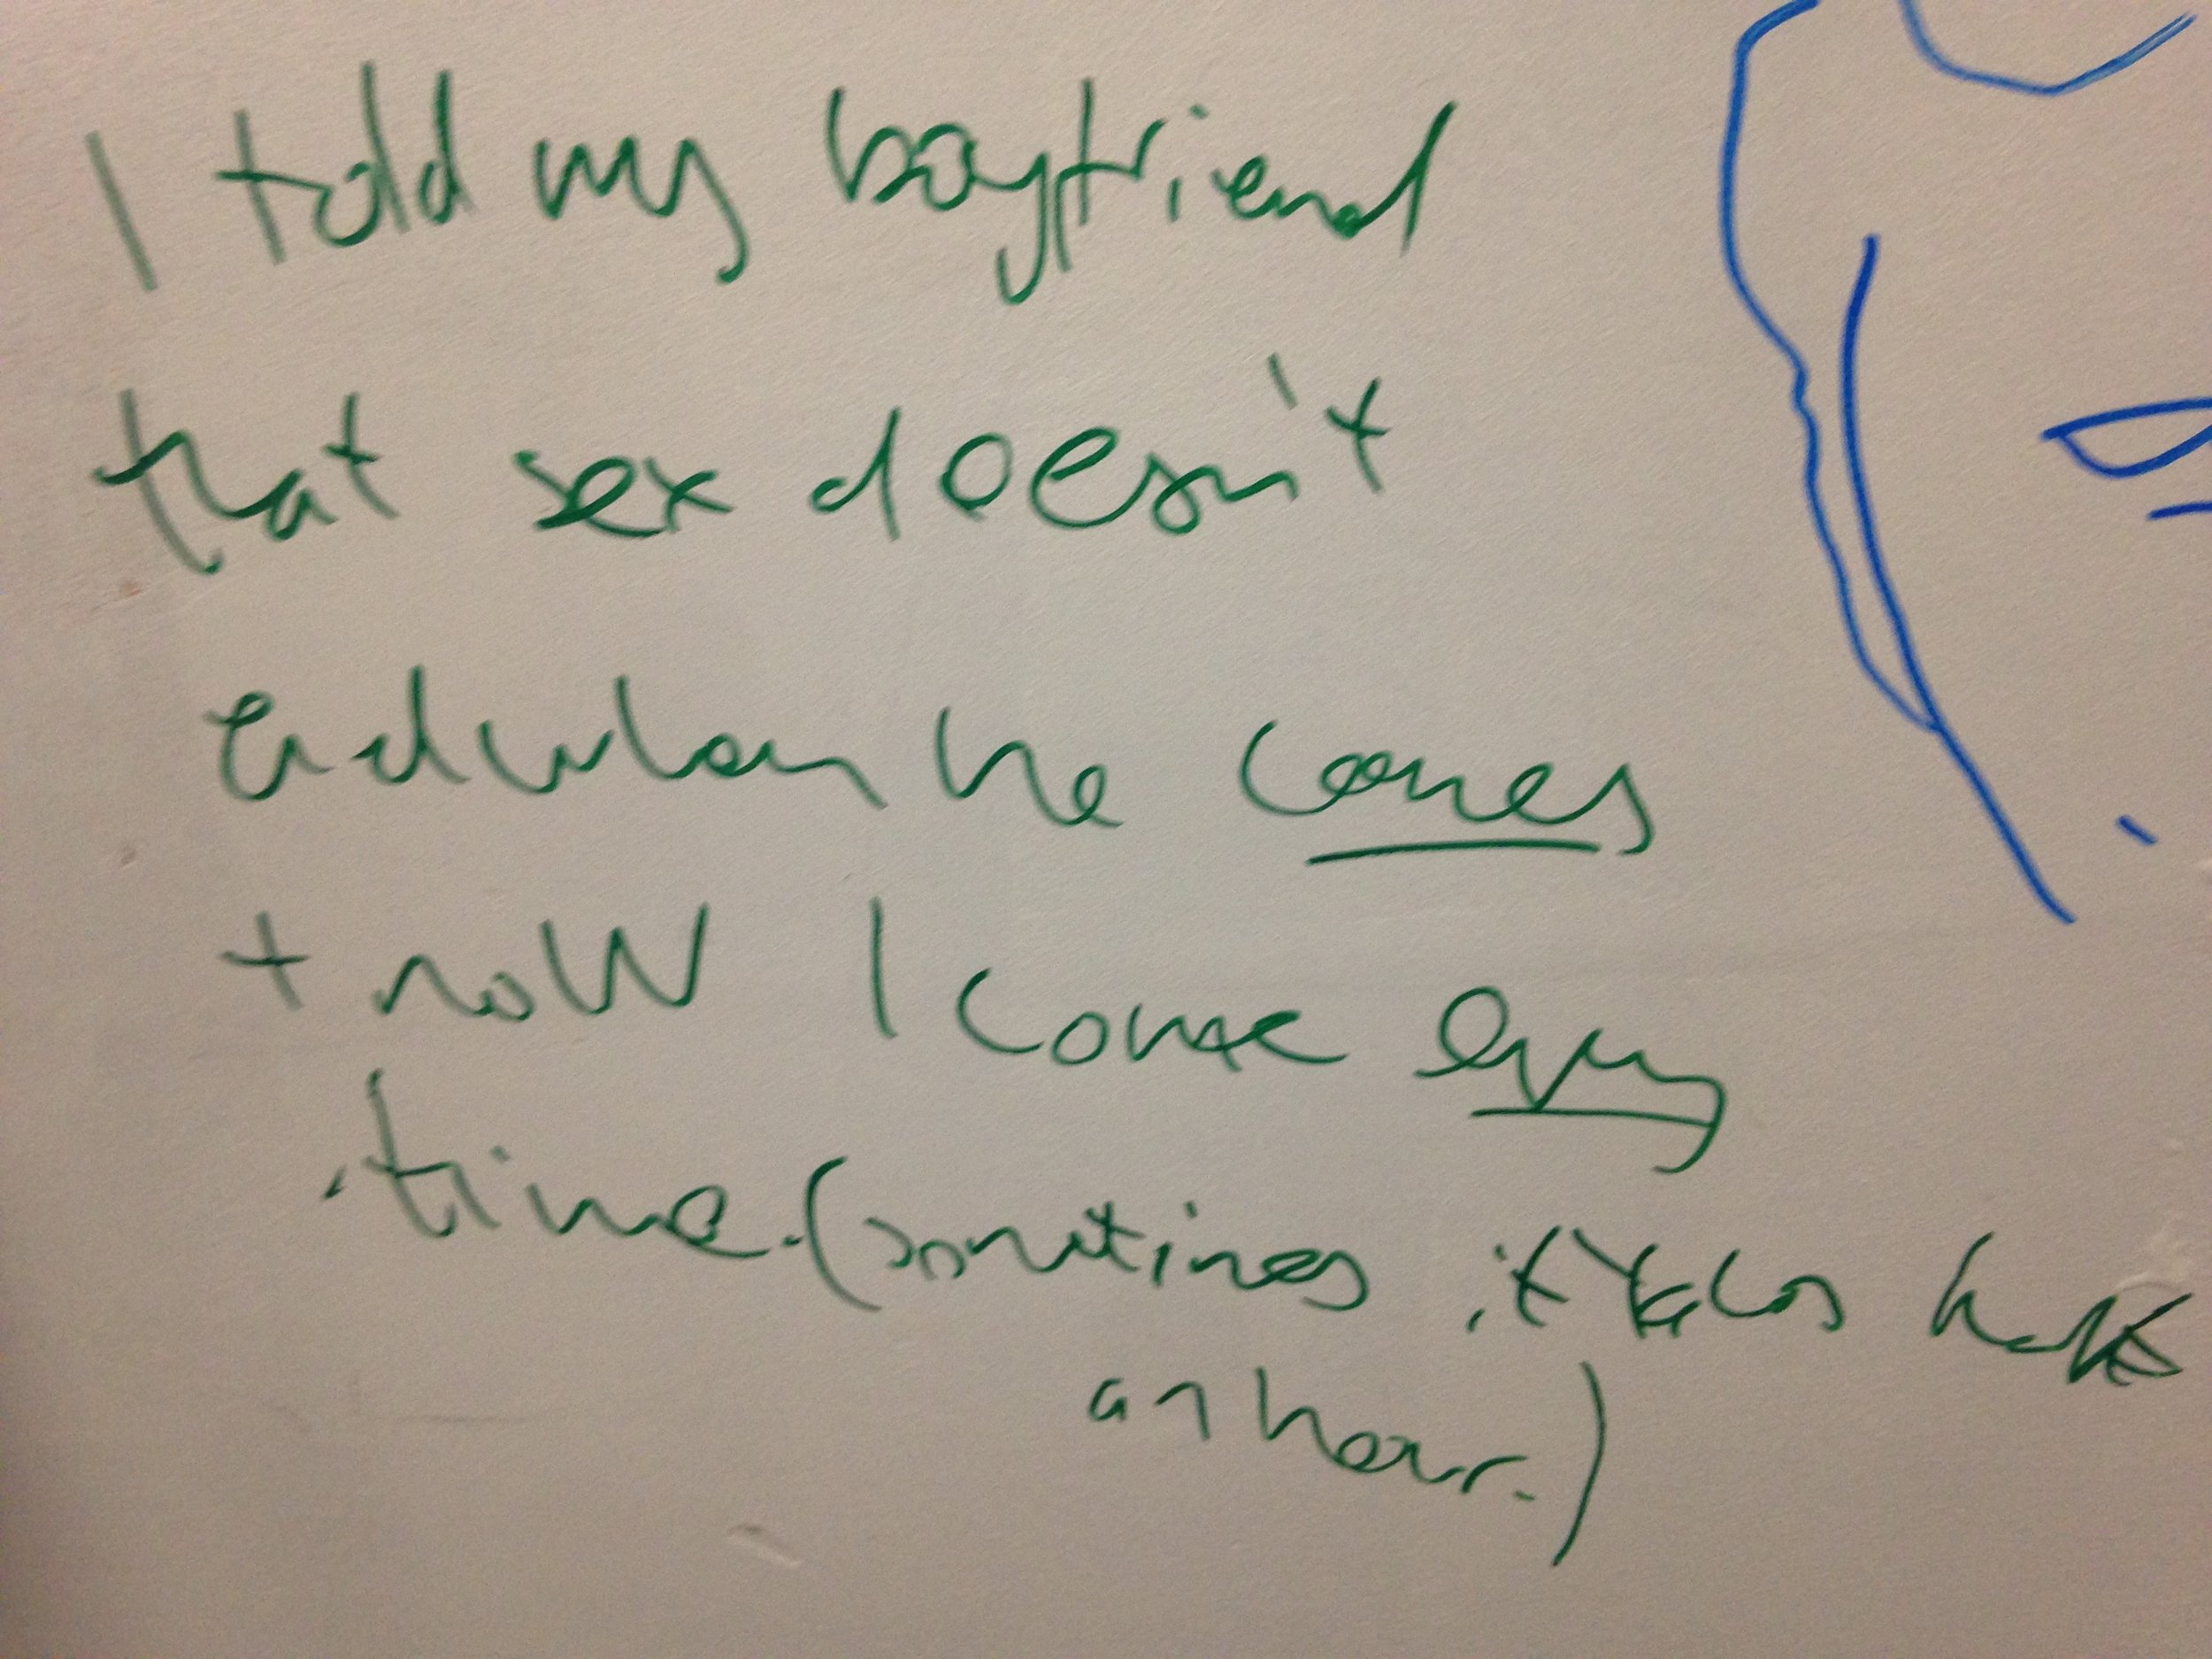 I told my boyfriend
that sex doesn't
end when he comes
+ now I come every
time. (sometimes it takes half
an hour.)